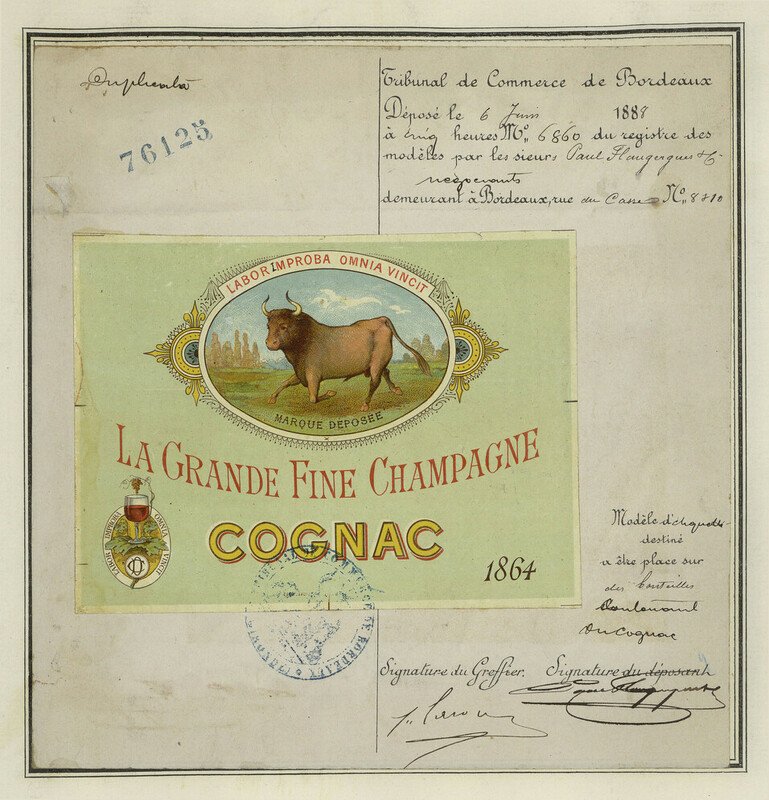 Duplicata
76125
Tribunal de Commerce de Bordeaux
Déposé le 6 Juin 1888
à cinq heures N° 6860 du registre des
modèles par les sieurs Paul Flaugergues & C
négociants
demeurant à Bordeaux, rue du Casse N°
LABOR IMPROBA OMNIA VINCIT
MARQUE DEPOSEE
LA GRANDE FINE CHAMPAGNE
COGNAC
1864
LABOR IMPROBA OMNIA VINCIT
Modèle d'étiquette
destiné
a être place sur
des bouteilles
contenant
du cognac
TRIBUNAL DE COMMERCE DE BORDEAUX
Signature du Greffier. Signature du déposant